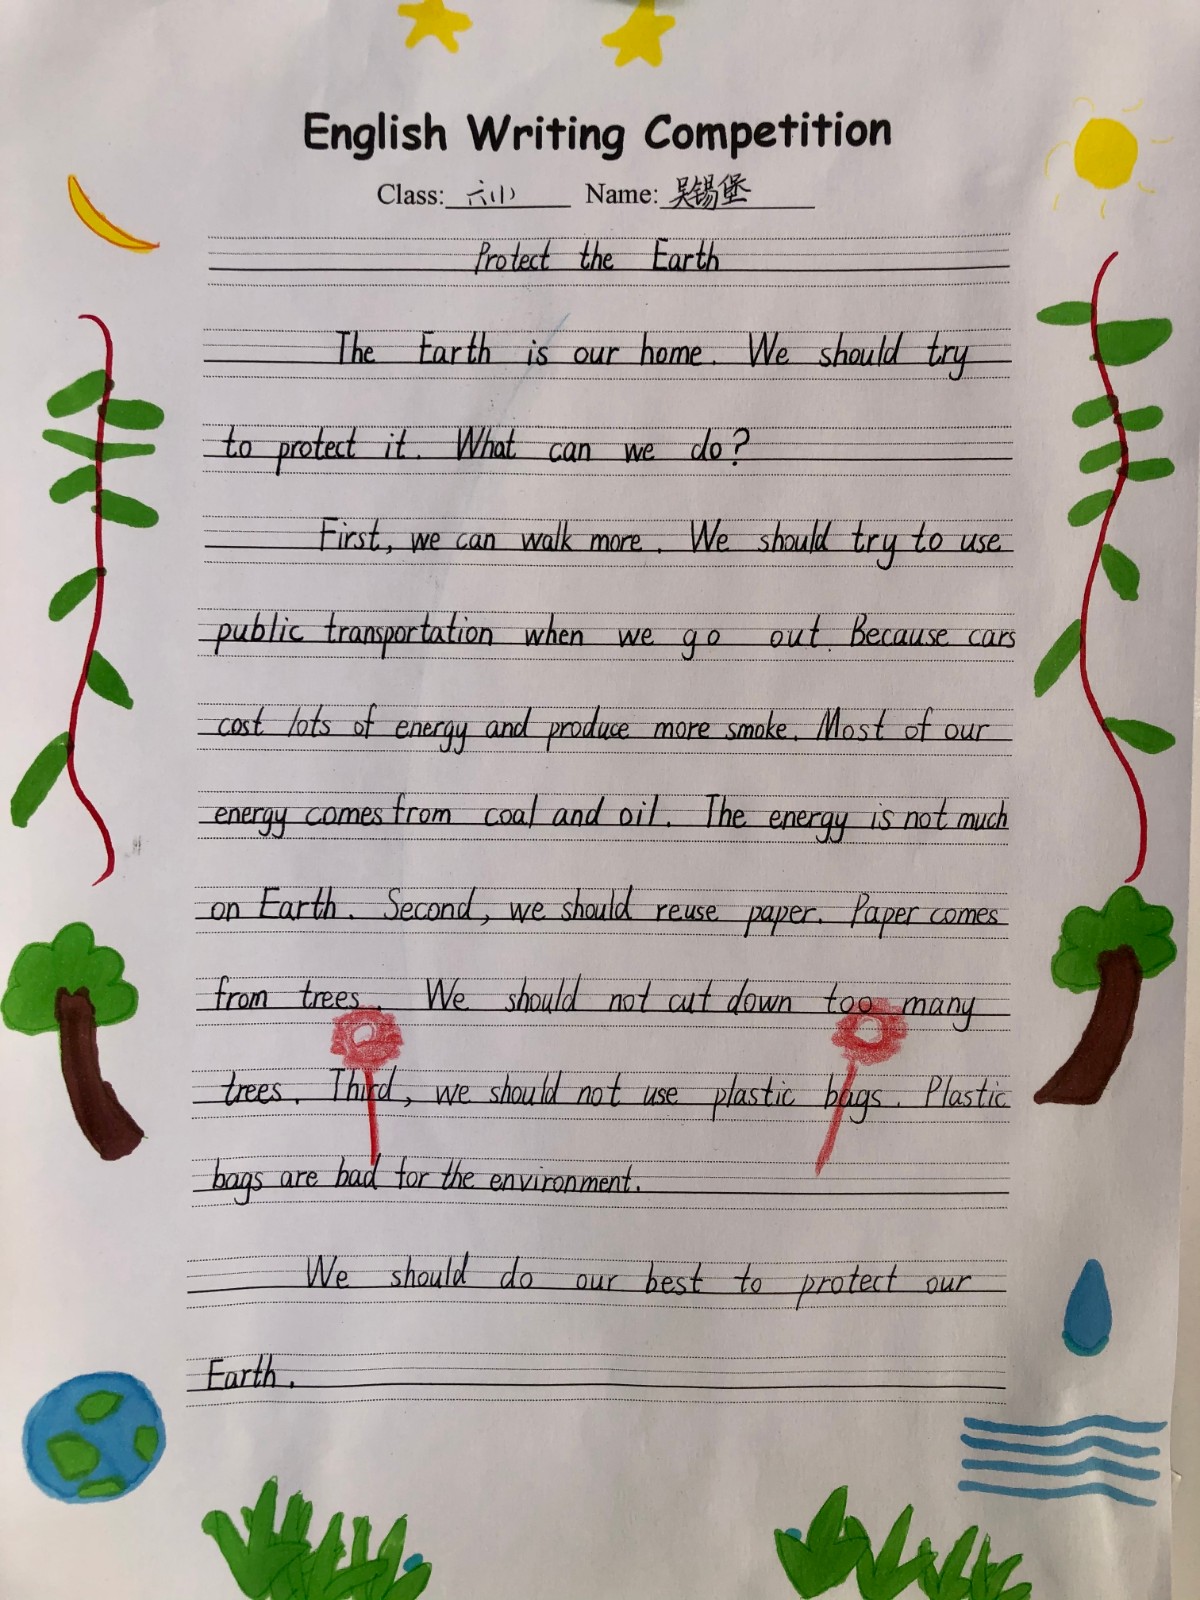 English Writing Competition
Class: 六小 Name: 吴锡堡
Protect the Earth
The Earth is our home. We should try
to protect it. What can we do?
First, we can walk more. We should try to use
public transportation when we go out. Because cars
cost lots of energy and produce more smoke. Most of our
energy comes from coal and oil. The energy is not much
on Earth. Second, we should reuse paper. Paper comes
from trees. We should not cut down too many
trees. Third, we should not use plastic bags. Plastic
bags are bad for the environment.
We should do our best to protect our
Earth.